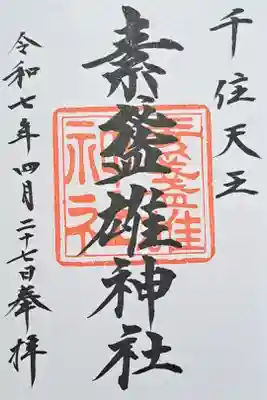 千住天王
素盞雄神社
素盞雄
神社
令和七年四月二十七日奉拝